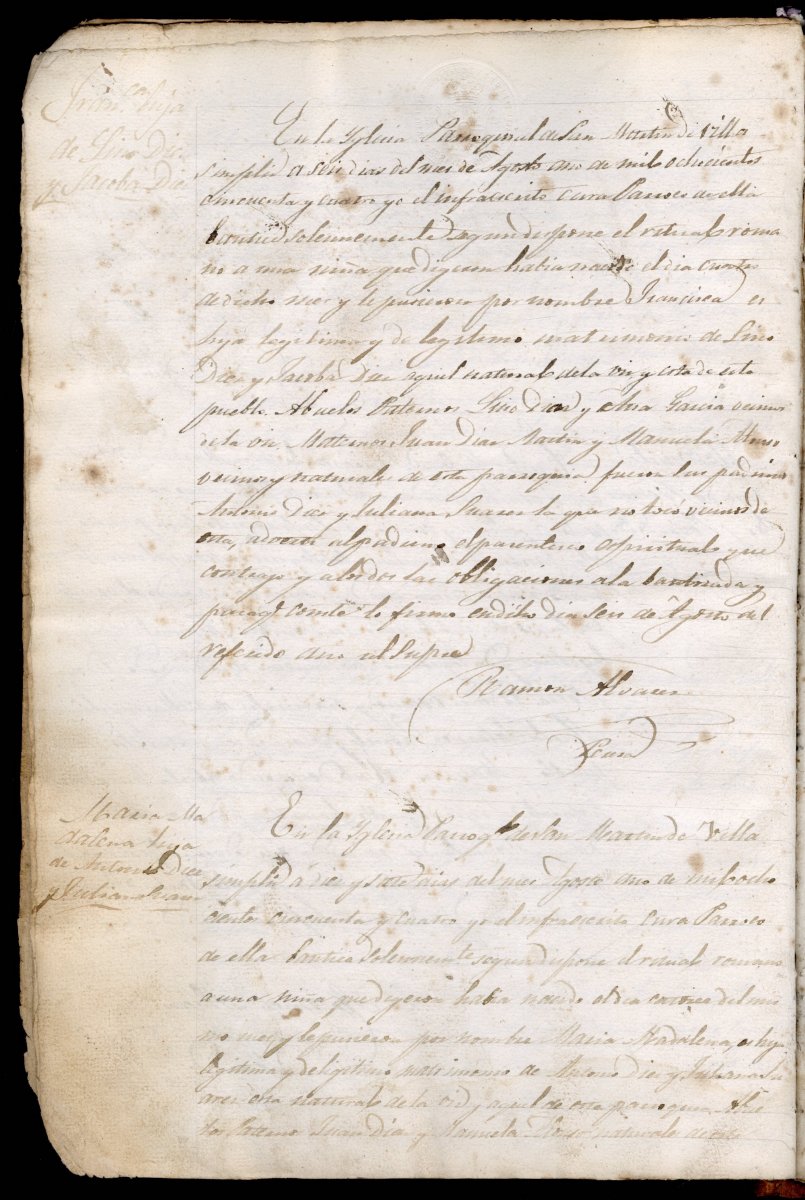 Fran.ca hija
de Lino Diez
y Jacoba Diez
En la Yglesia Parroquial de San Martin de Villa
simpliz a seis dias del mes de Agosto año de mil ochocientos
cincuenta y cuatro yo el infraescrito Cura Parroco de ella
bautice solemnemente segun dispone el ritual roma
no a una niña que digeron habia nacido el dia cuatro
de dicho mes y le pusieron por nombre Francisca es
hija legitima y de legitimo matrimonio de Lino
Diez y Jacoba Diez aquel natural de la vid y esta de este
pueblo. Abuelos Paternos Lino Diez y Garcia vecinos
de la vid Maternos Juan Diez Martin y Manuela Alonso
vecinos y naturales de esta parroquia fueron sus padrinos
Antonio Diez y Juliana Suarez la que no tocó vecinos de
esta, adverti al padrino el parentesco espiritual que
contrajo y a todos las obligaciones a la bautizada y
para q.e conste lo firmo en dicho dia seis de Agosto del
referido año ut supra
Ramon Alvarez
Cura
Maria Ma
dalena hija
de Antonio Diez
y Juliana Suarez
En la Yglesia Parroq.l de San Martin de Villa
simpliz á diez y siete dias del mes Agosto año de mil ocho
cientos cincuenta y cuatro yo el infraescrito Cura Parroco
de ella bautice solemnemente segun dispone el ritual romano
a una niña que digeron habia nacido el dia catorce del mis
mo mes y le pusieron por nombre Maria Madalena, es hija
legitima y de legitimo matrimonio de Antonio Diez y Juliana Su
arez esta natural de la vid y aquel de esta parroquia. Abue
los Paternos Juan Diez y Manuela Alonso naturales de esta